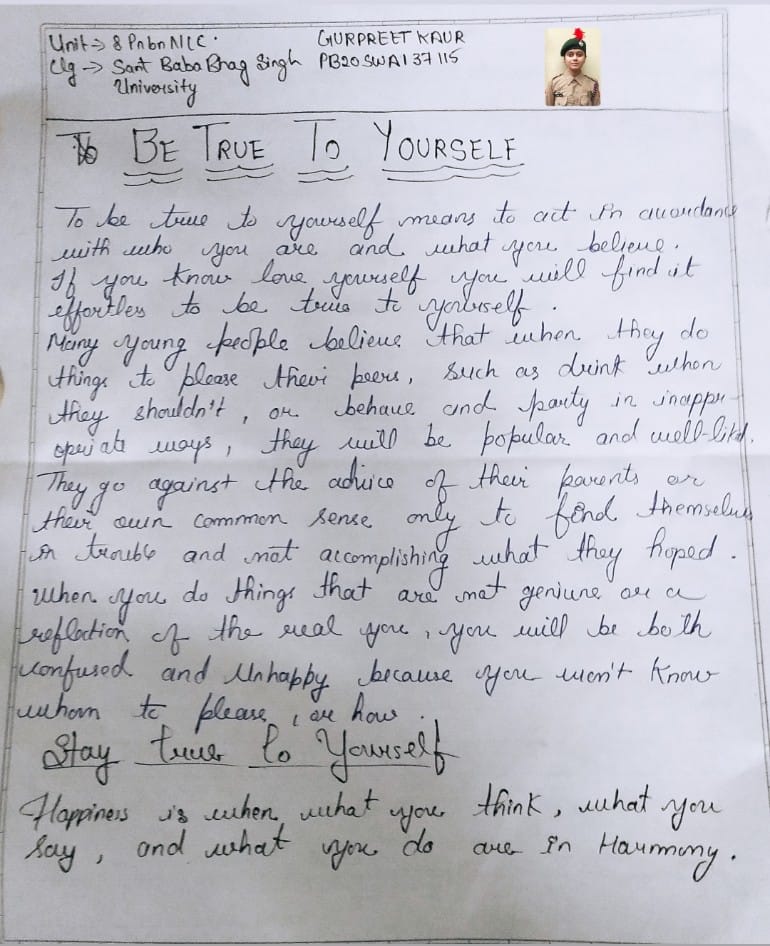 Unit → 8 Pnbn NCC.
GURPREET KAUR
Clg → Sant Baba Bhag Singh University
PB20SWA137115
To BE TRUE TO YOURSELF
To be true to yourself means to act in accordance
with who you are and what you believe.
If you know love yourself you will find it
effortles to be true to yourself.
Many young people believe that when they do
things to please their peers, such as drink when
they shouldn't, or behave and party in inappr-
opriate ways, they will be popular and well-liked.
They go against the advice of their parents or
their own common sense only to find themselves
in trouble and not accomplishing what they hoped.
When you do things that are not geniune or a
reflection of the real you, you will be both
confused and Unhappy because you won't know
whom to please, or how.
Stay true to Yourself
Happiness is when what you think, what you
say, and what you do are in Harmony.